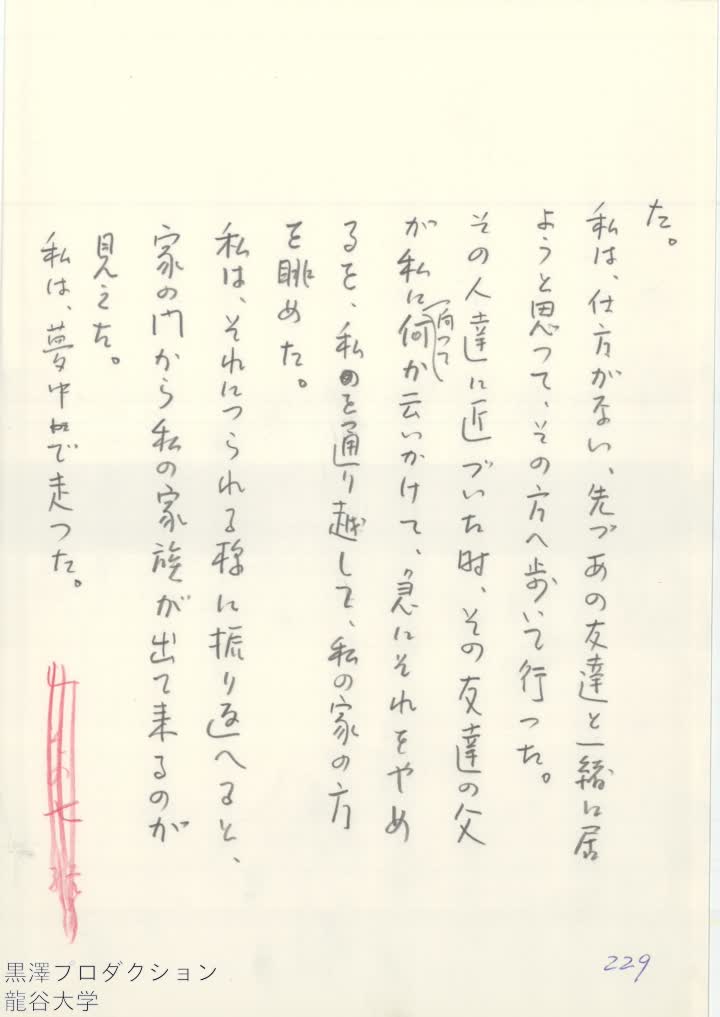 た。
私は、仕方がない、先づあの友達と一緒に居
ようと思つて、その方へ歩いて行つた。
その人達に近づいた時、その友達の父
が私に向つて何か云いかけて、急にそれをやめ
ると、私を通り越して、私の家の方
を眺めた。
私は、それにつられる様に振り返へると、
家の門から私の家族が出て来るのが
見えた。
私は、夢中で走つた。
229
黒澤プロダクション
龍谷大学